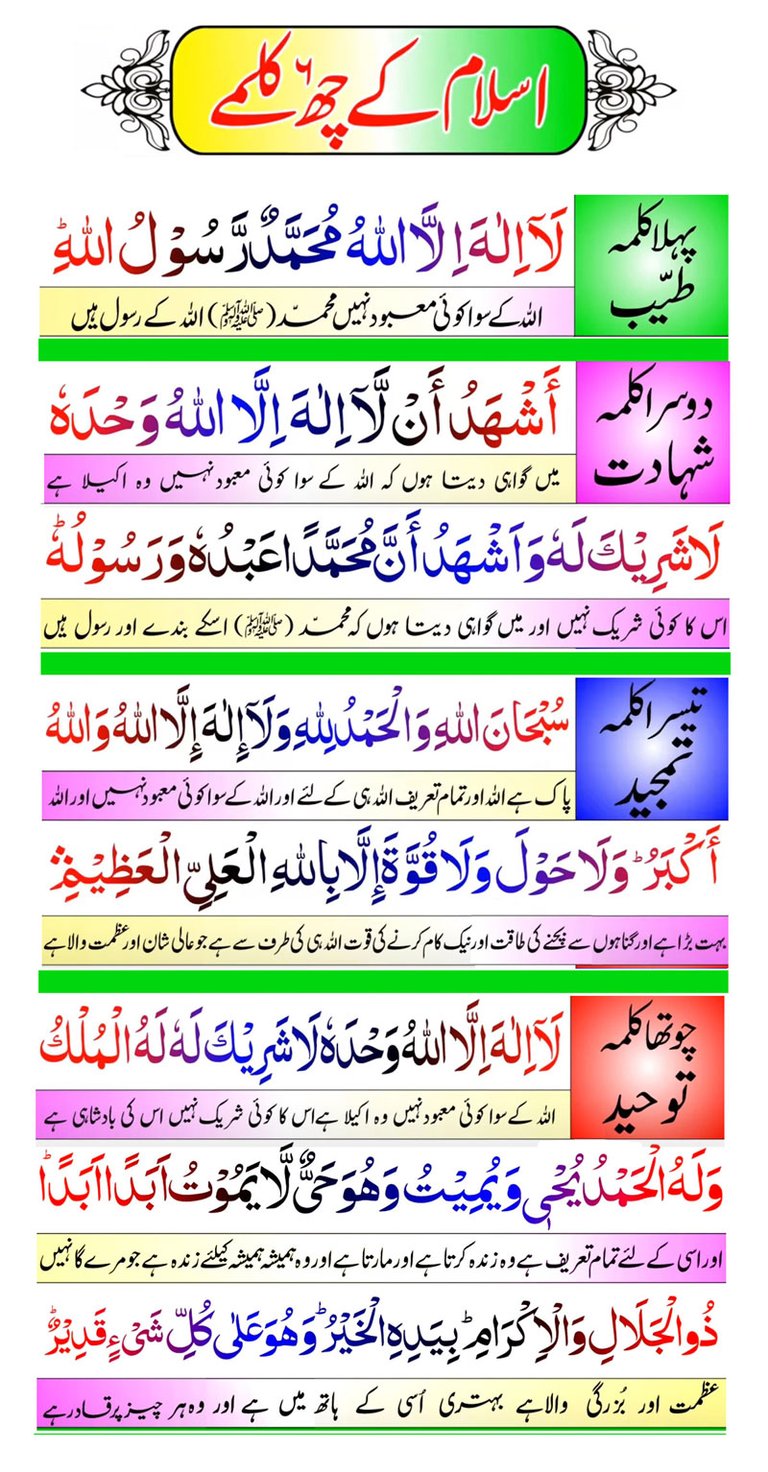 اسلام کے چھ ۶ کلمے
پہلا کلمہ
طیّب
لَآ اِلٰهَ اِلَّا اللهُ مُحَمَّدٌ رَّسُوْلُ اللهِؕ
اللہ کے سوا کوئی معبود نہیں محمدّ (ﷺ) اللہ کے رسول ہیں
دوسرا کلمہ
شہادت
أَشْهَدُ أَنْ لَّآ اِلٰهَ اِلَّا اللهُ وَحْدَهٗ
میں گواہی دیتا ہوں کہ اللہ کے سوا کوئی معبود نہیں وہ اکیلا ہے
لَا شَرِيْكَ لَهٗ وَاَشْهَدُ أَنَّ مُحَمَّدًا عَبْدُهٗ وَرَسُوْلُهٗؕ
اس کا کوئی شریک نہیں اور میں گواہی دیتا ہوں کہ محمدّ (ﷺ) اسکے بندے اور رسول ہیں
تیسرا کلمہ
تمجید
سُبْحَانَ اللهِ وَالْحَمْدُ لِلّٰهِ وَلَآ إِلٰهَ إِلَّا اللهُ وَاللهُ
پاک ہے اللہ اور تمام تعریف اللہ ہی کے لئے اور اللہ کے سوا کوئی معبود نہیں اور اللہ
أَكْبَرُؕ وَلَا حَوْلَ وَلَا قُوَّةَ إِلَّا بِاللهِ الْعَلِيِّ الْعَظِيْمِ
بہت بڑا ہے اور گناہوں سے بچنے کی طاقت اور نیک کام کرنے کی قوت اللہ ہی کی طرف سے ہے جو عالی شان اور عظمت والا ہے
چوتھا کلمہ
توحید
لَآ اِلٰهَ اِلَّا اللهُ وَحْدَهٗ لَا شَرِيْكَ لَهٗ لَهُ الْمُلْكُ
اللہ کے سوا کوئی معبود نہیں وہ اکیلا ہے اس کا کوئی شریک نہیں اس کی بادشاہی ہے
وَلَهُ الْحَمْدُ يُحْيٖ وَيُمِيْتُ وَهُوَ حَيٌّ لَّا يَمُوْتُ اَبَدًا اَبَدًاؕ
اور اسی کے لئے تمام تعریف ہے وہ زندہ کرتا ہے اور مارتا ہے اور وہ ہمیشہ ہمیشہ کیلئے زندہ ہے جو مرے گا نہیں
ذُو الْجَلَالِ وَالْاِكْرَامِؕ بِيَدِهِ الْخَيْرُؕ وَهُوَ عَلٰى كُلِّ شَیْءٍ قَدِيْرٌؕ
عظمت اور بُزرگی والا ہے بہتری اُسی کے ہاتھ میں ہے اور وہ ہر چیز پر قادر ہے